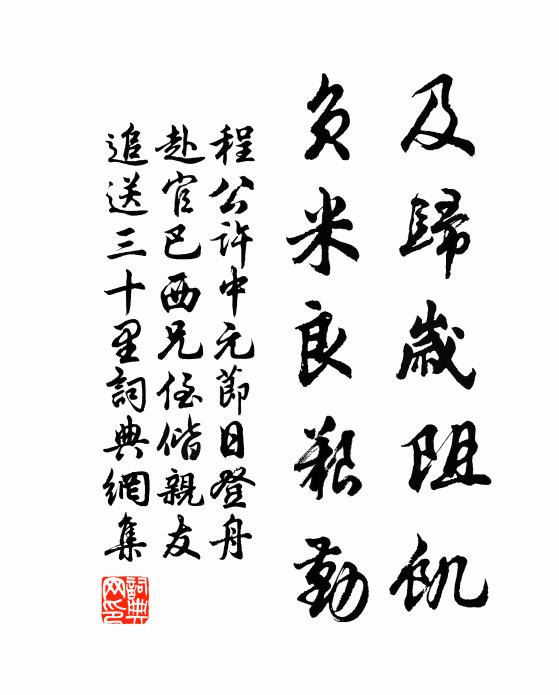 及歸歲阻飢
負米良艱勤
程公許中元節日登舟
赴官巴西兄侄偕親友
追送三十里詞典網集
詞典網印